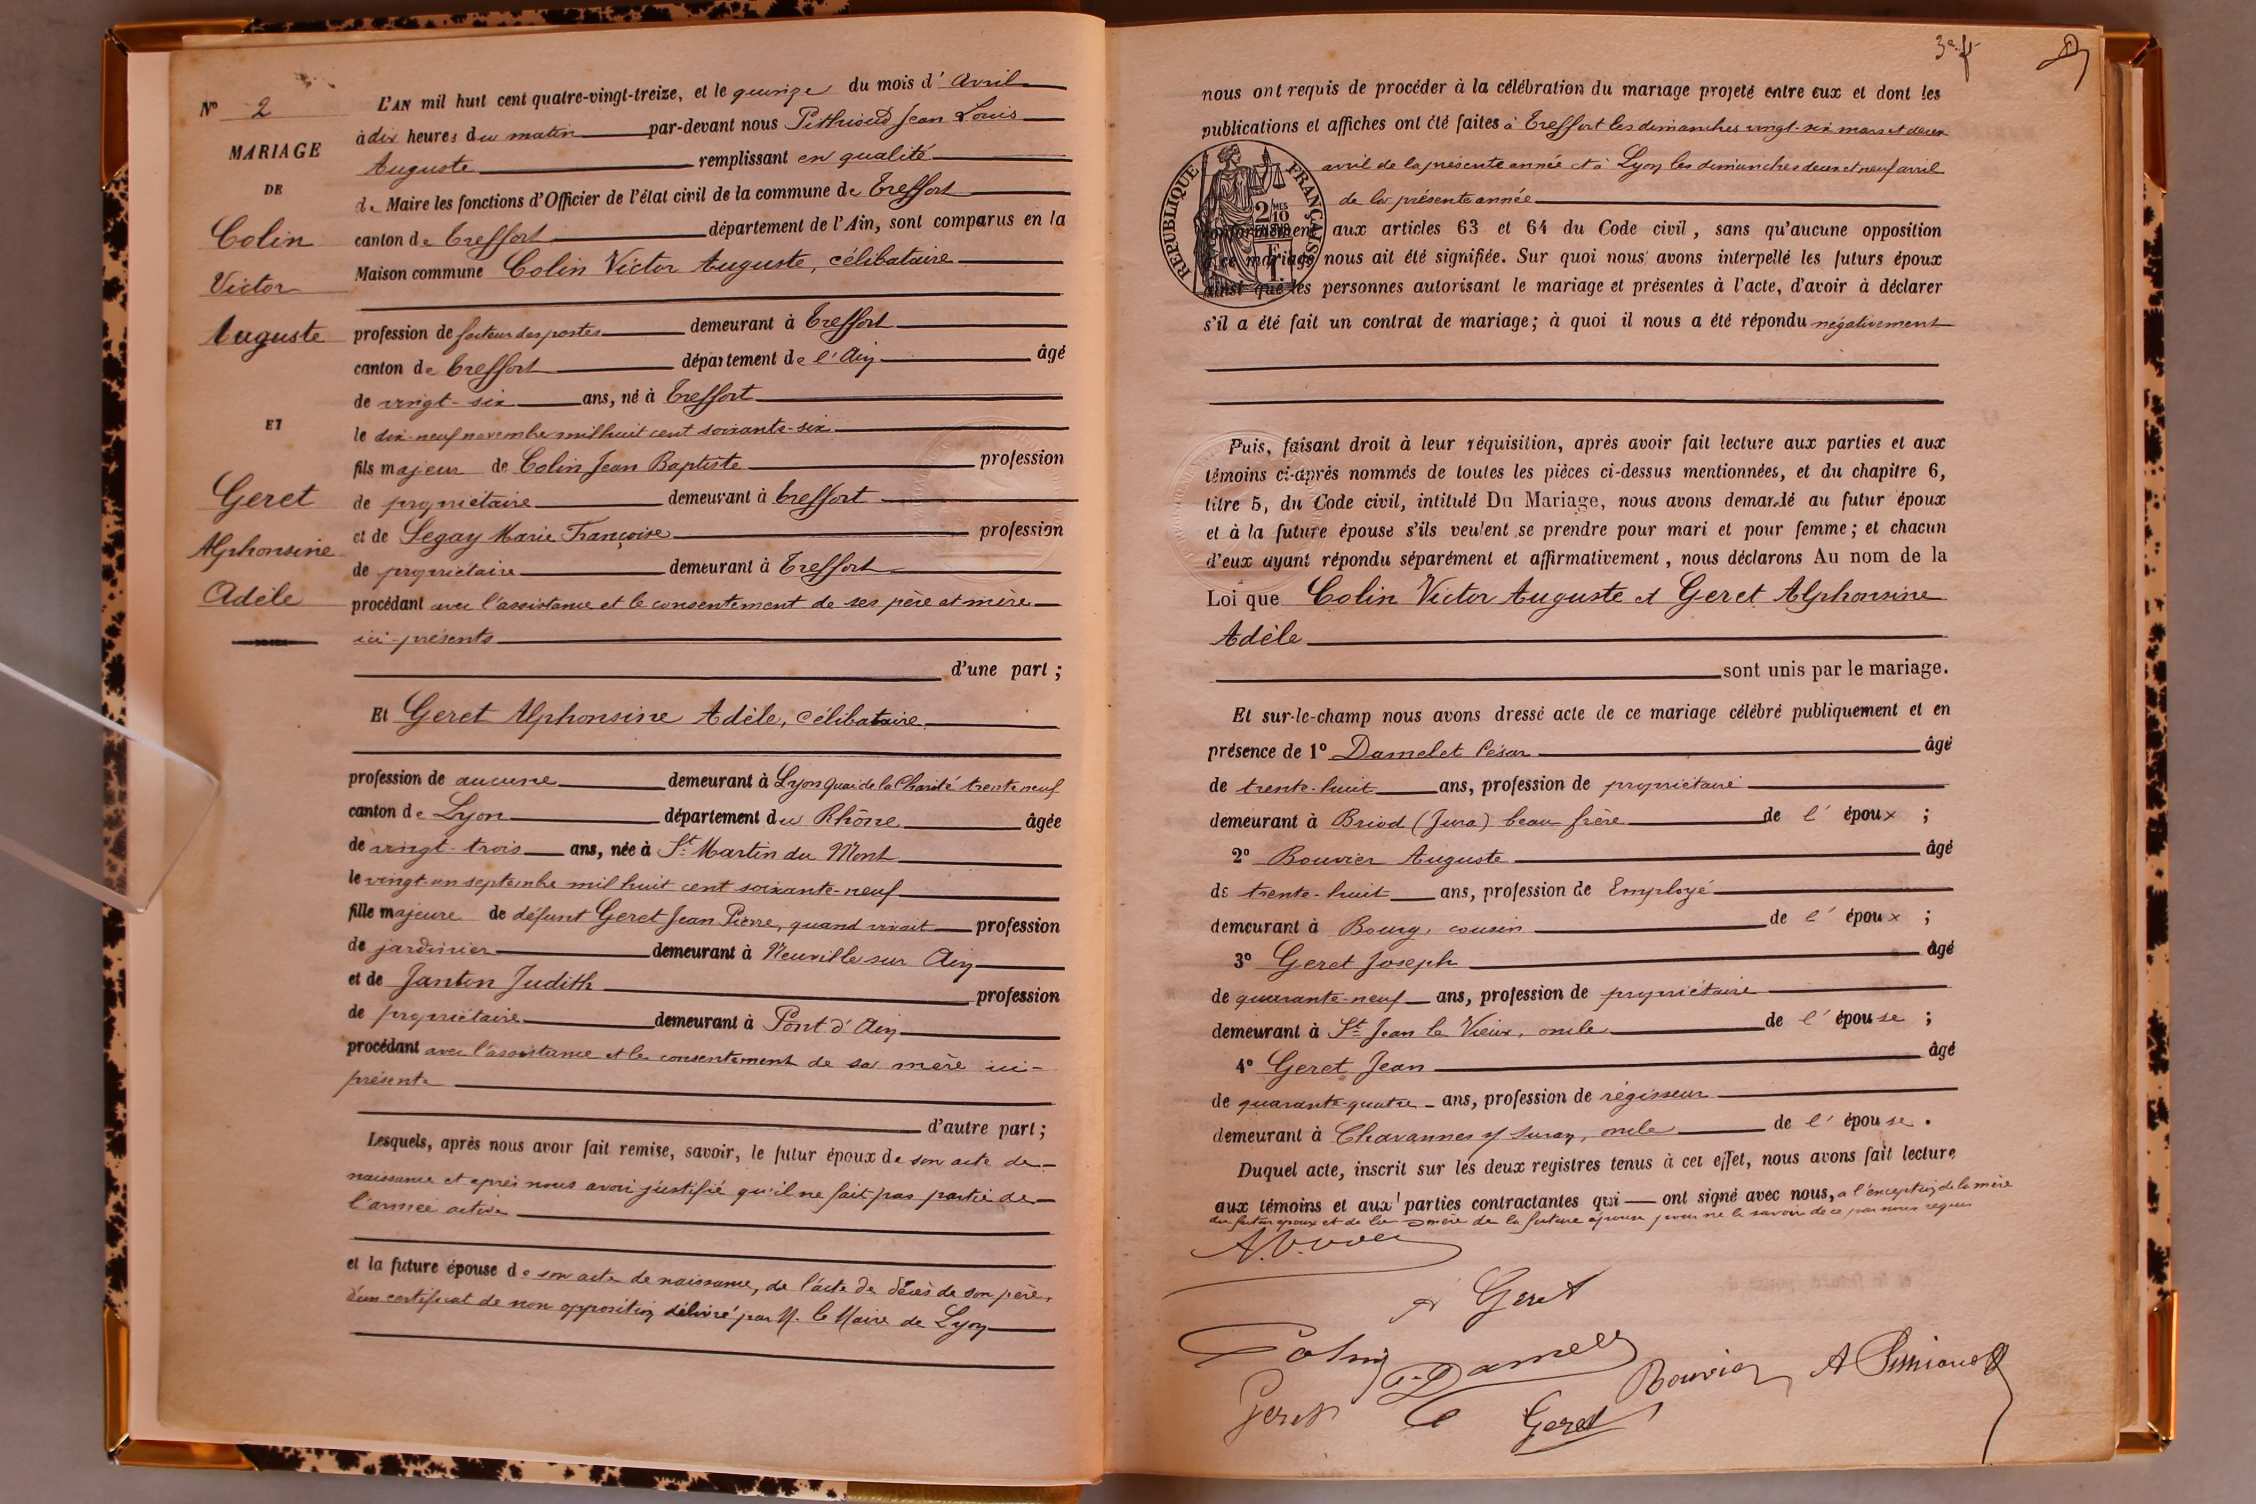 N° 2
MARIAGE
DE
Colin
Victor
Auguste
ET
Geret
Alphonsine
Adèle
L'AN mil huit cent quatre-vingt-treize, et le quinze du mois d'Avril
à dix heures du matin par-devant nous Pithioud Jean Louis
Auguste remplissant en qualité
de Maire les fonctions d'Officier de l'état civil de la commune de Treffort
canton de Treffort département de l'Ain, sont comparus en la
Maison commune Colin Victor Auguste, célibataire
profession de facteur des postes demeurant à Treffort
canton de Treffort département de l'Ain âgé
de vingt-six ans, né à Treffort
le dix-neuf novembre mil huit cent soixante-six
fils majeur de Colin Jean Baptiste profession
de propriétaire demeurant à Treffort
et de Segay Marie Françoise profession
de propriétaire demeurant à Treffort
procédant avec l'assistance et le consentement de ses père et mère
ici-présents
d'une part ;
Et Geret Alphonsine Adèle, célibataire
profession de aucune demeurant à Lyon quai de la Charité trente neuf
canton de Lyon département du Rhône âgée
de vingt-trois ans, née à St Martin du Mont
le vingt-un septembre mil huit cent soixante-neuf
fille majeure de défunt Geret Jean Pierre, quand vivait profession
de jardinier demeurant à Neuville sur Ain
et de Janton Judith profession
de propriétaire demeurant à Pont d'Ain
procédant avec l'assistance et le consentement de sa mère ici-
présente
d'autre part ;
Lesquels, après nous avoir fait remise, savoir, le futur époux de son acte de
naissance et après nous avoir justifié qu'il ne fait pas partie de
l'armée active
et la future épouse de son acte de naissance, de l'acte de décès de son père,
d'un certificat de non opposition délivré par M. le Maire de Lyon
3e f
nous ont requis de procéder à la célébration du mariage projeté entre eux et dont les
publications et affiches ont été faites à Treffort les dimanches vingt-six mars et deux
avril de la présente année et à Lyon les dimanches deux et neuf avril
de la présente année
RÉPUBLIQUE FRANÇAISE
2/10
conformément aux articles 63 et 64 du Code civil, sans qu'aucune opposition
à ce mariage nous ait été signifiée. Sur quoi nous avons interpellé les futurs époux
ainsi que les personnes autorisant le mariage et présentes à l'acte, d'avoir à déclarer
s'il a été fait un contrat de mariage ; à quoi il nous a été répondu négativement
Puis, faisant droit à leur réquisition, après avoir fait lecture aux parties et aux
témoins ci-après nommés de toutes les pièces ci-dessus mentionnées, et du chapitre 6,
titre 5, du Code civil, intitulé Du Mariage, nous avons demandé au futur époux
et à la future épouse s'ils veulent se prendre pour mari et pour femme ; et chacun
d'eux ayant répondu séparément et affirmativement, nous déclarons Au nom de la
Loi que Colin Victor Auguste et Geret Alphonsine
Adèle
sont unis par le mariage.
Et sur-le-champ nous avons dressé acte de ce mariage célébré publiquement et en
présence de 1° Damelet César âgé
de trente-huit ans, profession de propriétaire
demeurant à Briod (Jura) beau frère de l'époux ;
2° Bouvier Auguste âgé
de trente-huit ans, profession de Employé
demeurant à Bourg, cousin de l'époux ;
3° Geret Joseph âgé
de quarante-neuf ans, profession de propriétaire
demeurant à St Jean le Vieux, oncle de l'épouse ;
4° Geret Jean âgé
de quarante-quatre ans, profession de régisseur
demeurant à Chavannes s/ Suran, oncle de l'épouse.
Duquel acte, inscrit sur les deux registres tenus à cet effet, nous avons fait lecture
aux témoins et aux parties contractantes qui ont signé avec nous, a l'exception de la mère
du futur époux et de la mère de la future épouse pour ne le savoir de ce par nous requis
Geret
Colin
Geret
Geret
Bouvier